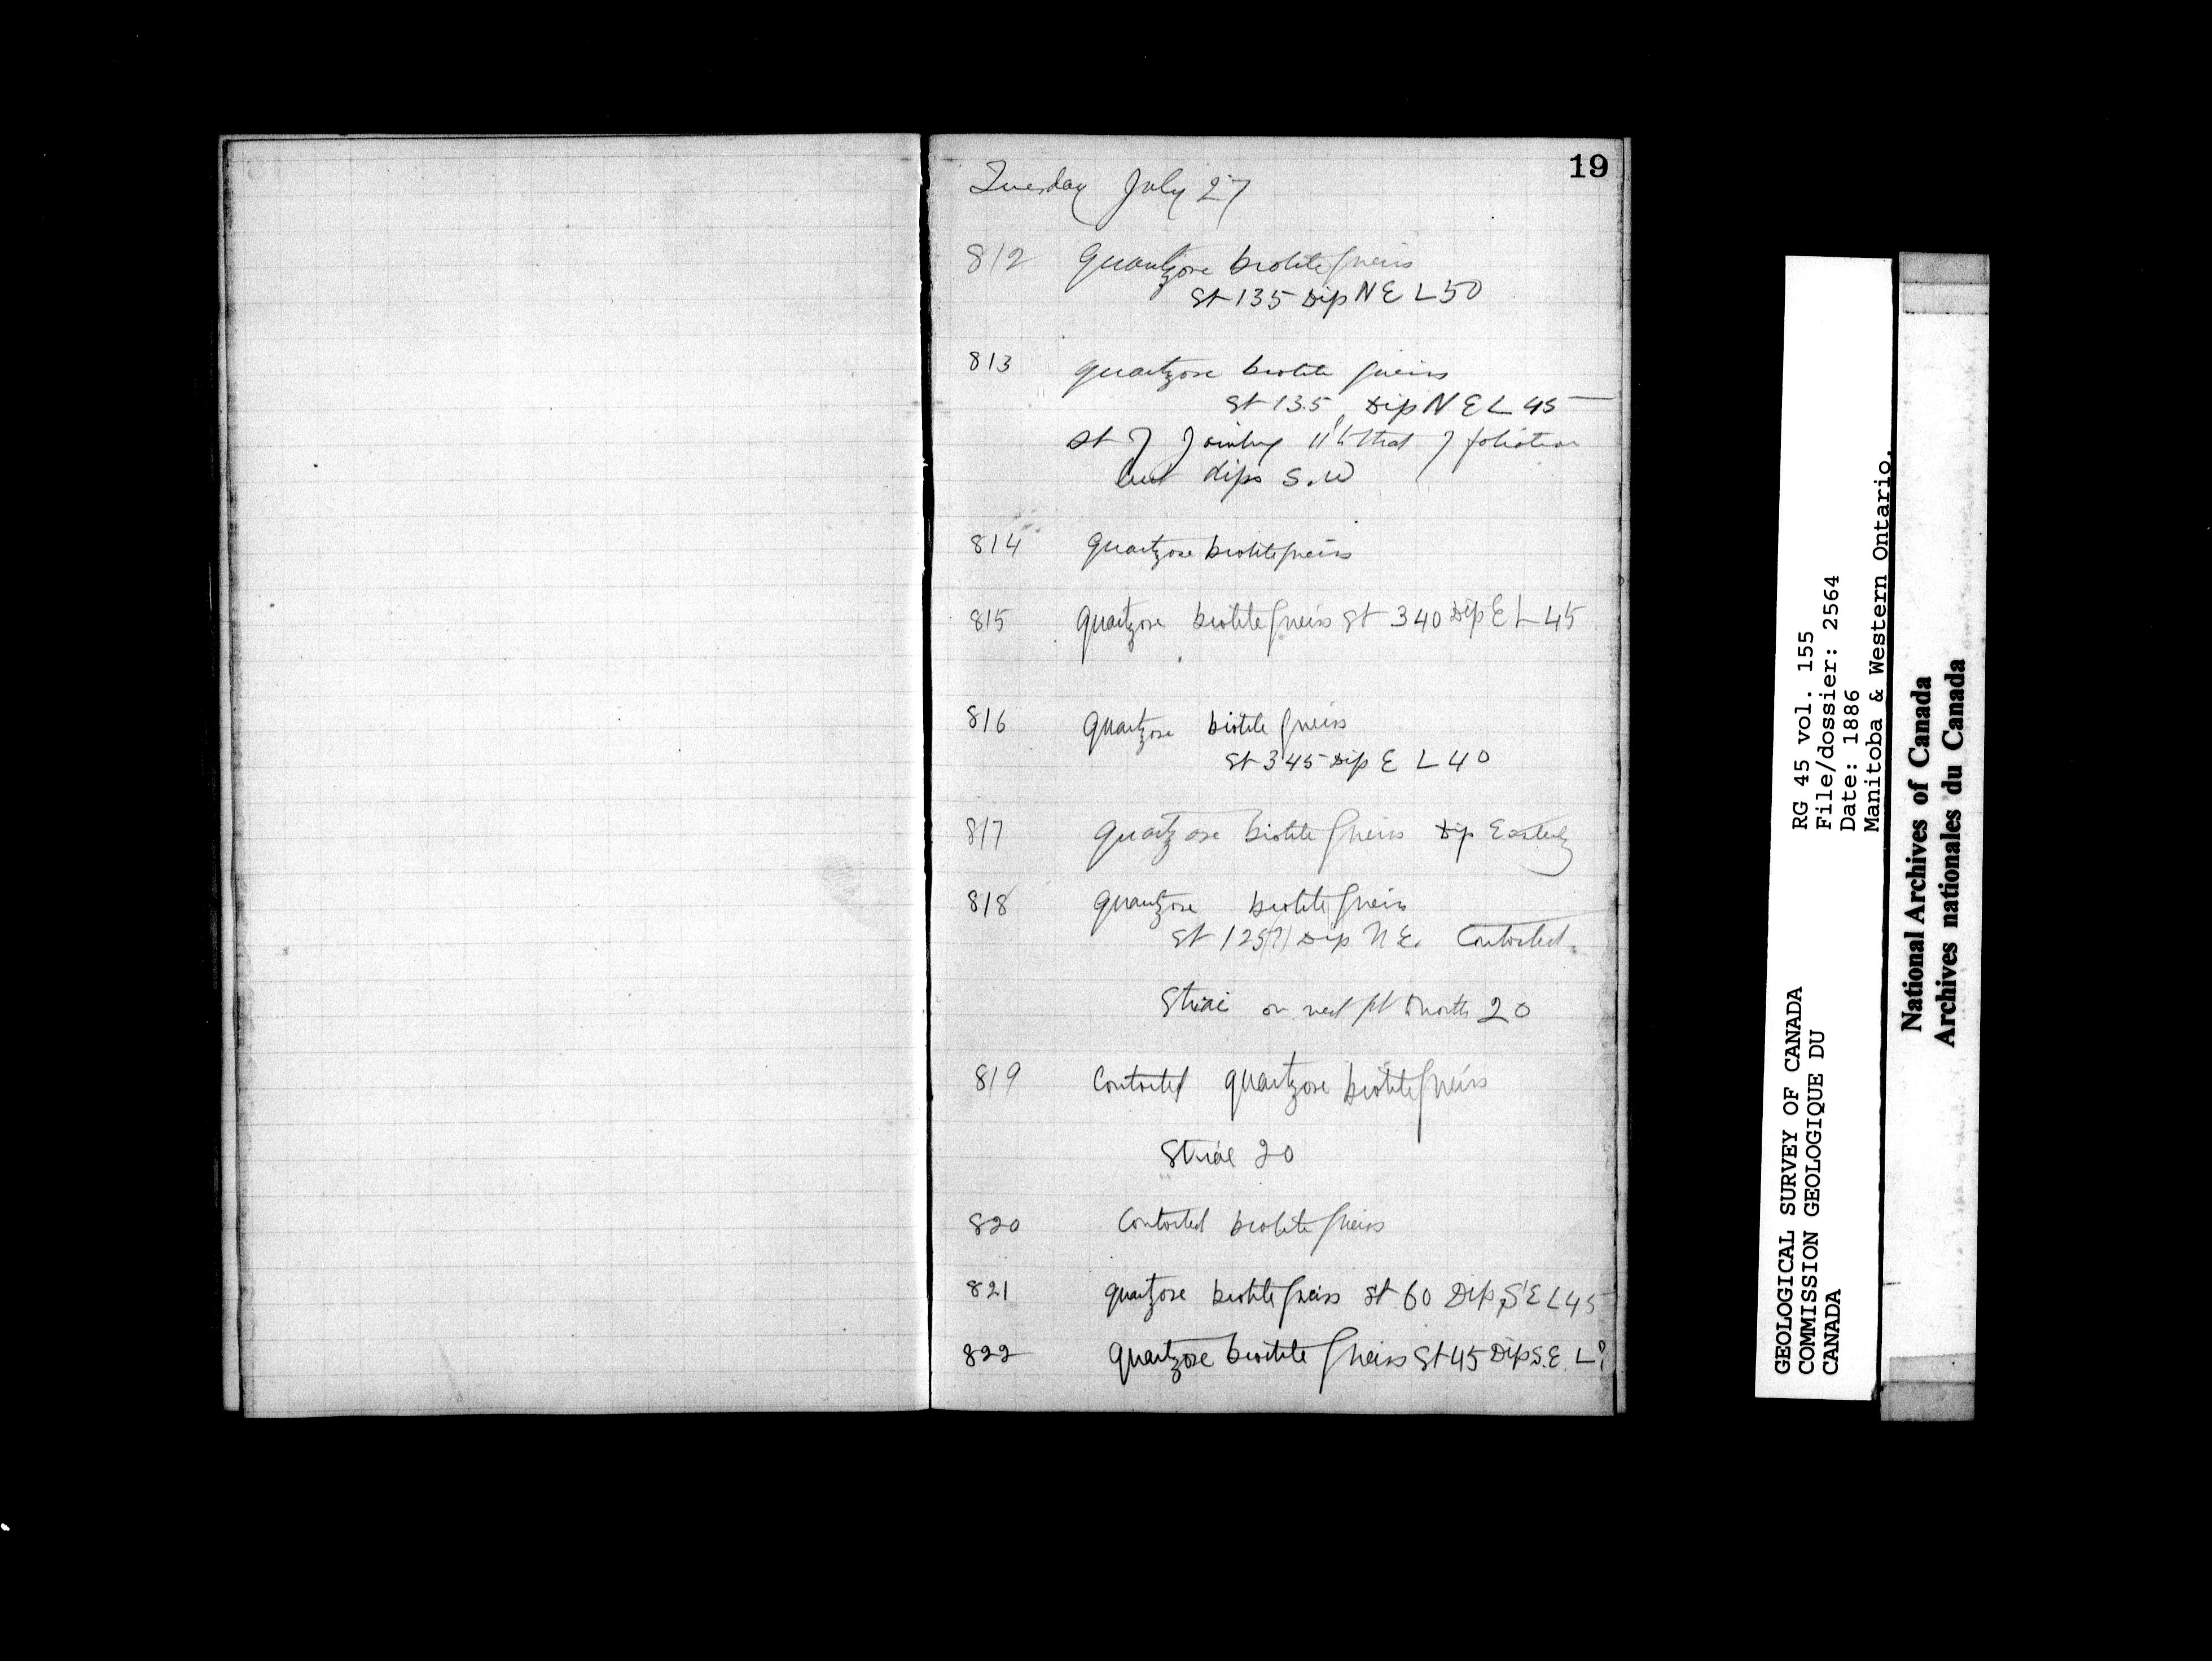 19
Tuesday July 27
812 Quartzose biotite gneiss
St 135 Dip NE L 50
813 quartzose biotite gneiss
St 135, Dip NE L 45
St of jointing 11' to that of foliation
but dips S.W
814 quartzose biotite gneiss
815 quartzose biotite gneiss St 340 Dip E L 45
816 quartzose biotite gneiss
St 345 Dip E L 40
817 quartzose biotite gneiss Dip Easterly
818 quartzose biotite gneiss
St 125(?) Dip N E. Contorted.
Striae on next pt to north 20
819 Contorted quartzose biotite gneiss
Striae 20
820 Contorted biotite gneiss
821 quartzose biotite gneiss St 60 Dip S E L 45
822 quartzose biotite gneiss St 45 Dip S.E. L ?
RG 45 vol. 155
File/dossier: 2564
Date: 1886
Manitoba & Western Ontario.
GEOLOGICAL SURVEY OF CANADA
COMMISSION GEOLOGIQUE DU
CANADA
National Archives of Canada
Archives nationales du Canada